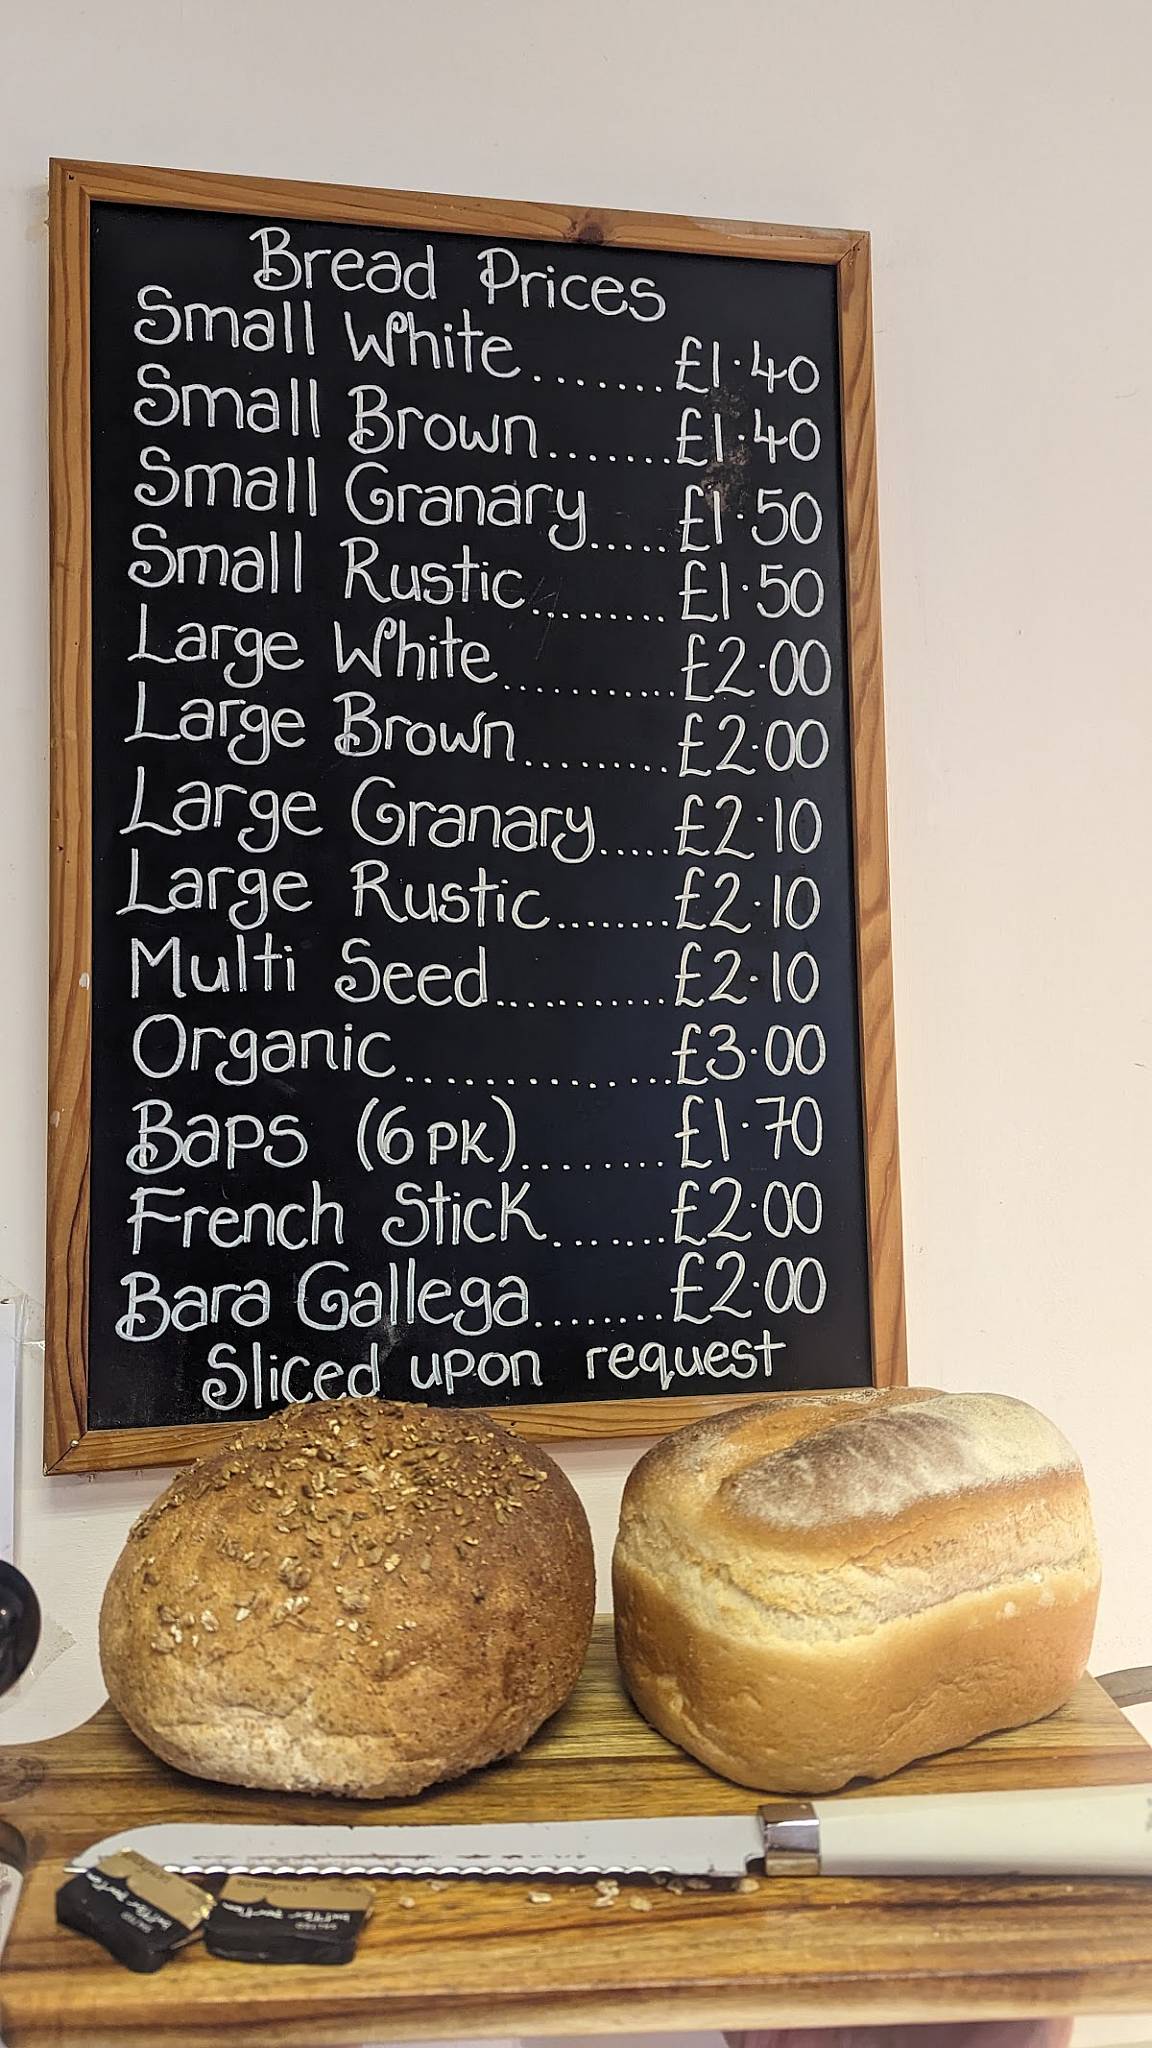 Bread Prices
Small White.......£1.40
Small Brown.......£1.40
Small Granary.....£1.50
Small Rustic........£1.50
Large White...........£2.00
Large Brown.........£2.00
Large Granary.....£2.10
Large Rustic.......£2.10
Multi Seed..........£2.10
Organic..............£3.00
Baps (6PK)........£1.70
French Stick.......£2.00
Bara Gallega........£2.00
Sliced upon request